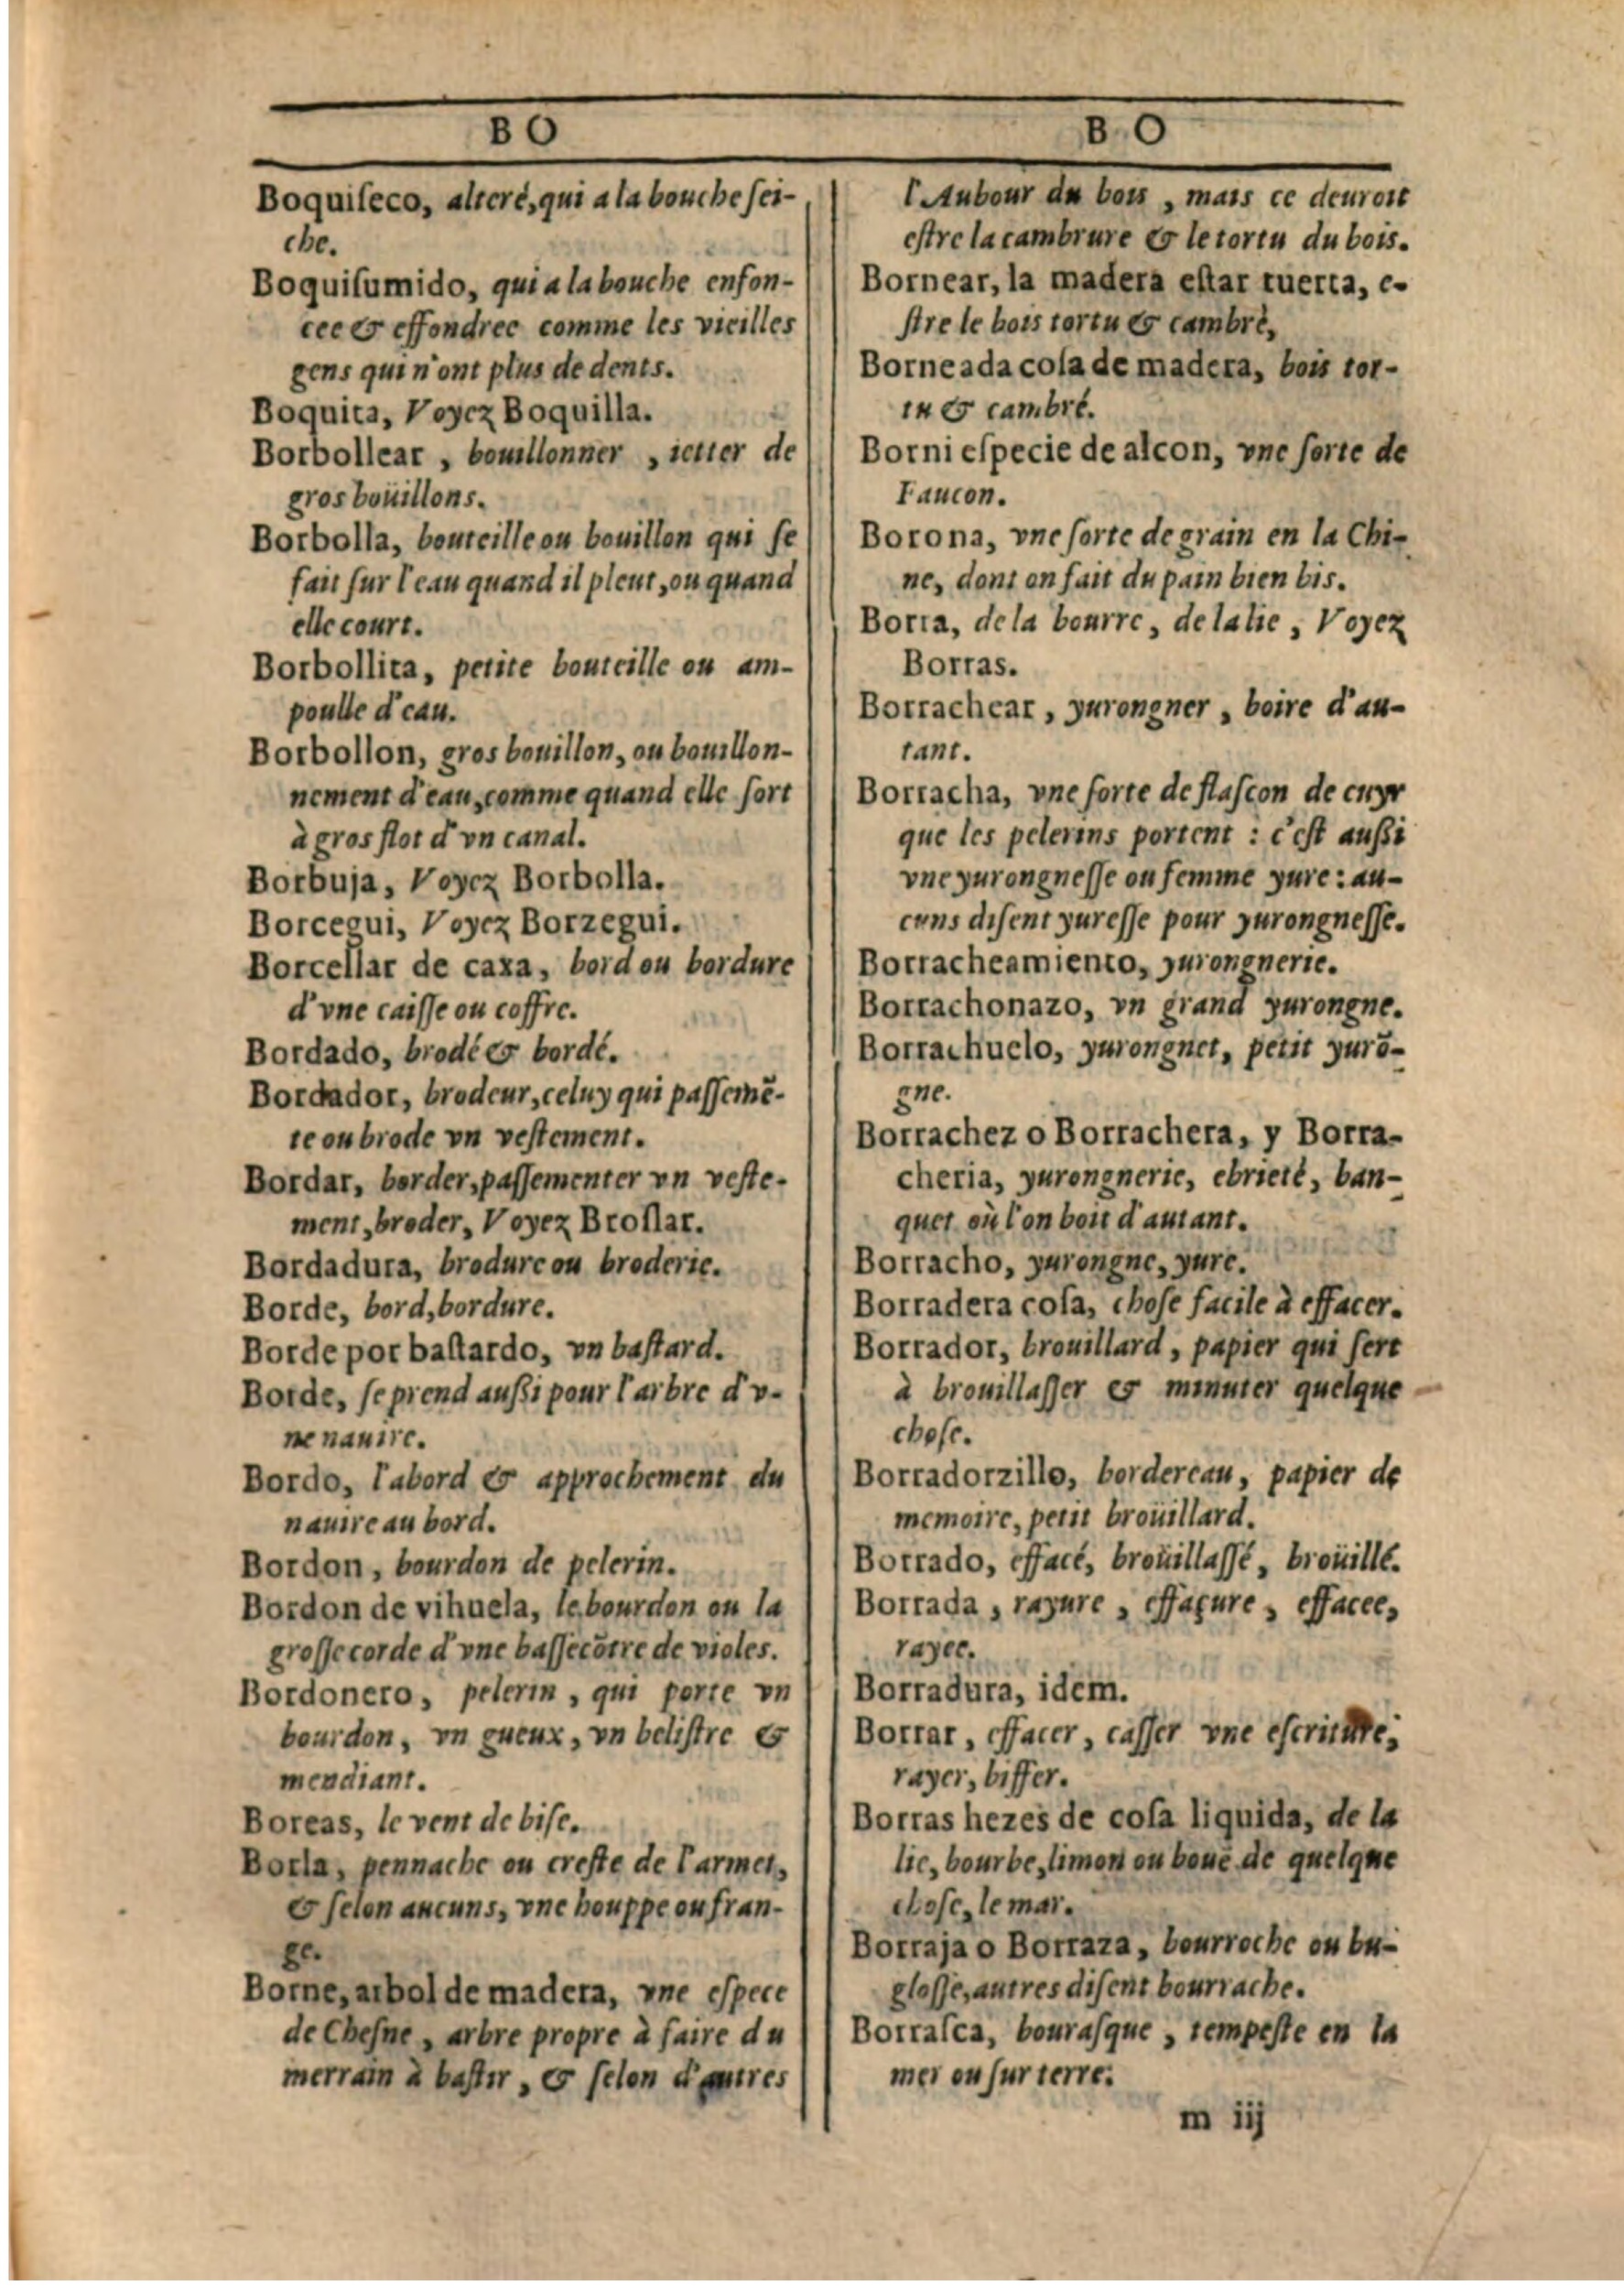 BO
Boquiſeco, alteré, qui a la bouche ſei-
che.
Boquiſumido, qui a la bouche enfon-
cee & effondree comme les vieilles
gens qui n'ont plus de dents.
Boquita, Voyez Boquilla.
Borbollear, bouillonner, ietter de
gros boüillons.
Borbolla, bouteille ou bouillon qui ſe
fait ſur l'eau quand il pleut, ou quand
elle court.
Borbollita, petite bouteille ou am-
poulle d'eau.
Borbollon, gros bouillon, ou bouillon-
nement d'eau, comme quand elle ſort
à gros flot d'vn canal.
Borbuja, Voyez Borbolla.
Borcegui, Voyez Borzegui.
Borcellar de caxa, bord ou bordure
d'vne caiſſe ou coffre.
Bordado, brodé & bordé.
Bordador, brodeur, celuy qui paſſemẽ-
te ou brode vn veſtement.
Bordar, border, paſſementer vn veſte-
ment, broder, Voyez Broſlar.
Bordadura, brodure ou broderie.
Borde, bord, bordure.
Borde por baſtardo, vn baſtard.
Borde, ſe prend auſſi pour l'arbre d'v-
ne nauire.
Bordo, l'abord & approchement du
nauire au bord.
Bordon, bourdon de pelerin.
Bordon de vihuela, le bourdon ou la
groſſe corde d'vne baſſecõtre de violes.
Bordonero, pelerin, qui porte vn
bourdon, vn gueux, vn beliſtre &
mendiant.
Boreas, le vent de biſe.
Borla, pennache ou creſte de l'armet,
& ſelon aucuns, vne houppe ou fran-
ge.
Borne, arbol de madera, vne eſpece
de Cheſne, arbre propre à faire du
merrain à baſtir, & ſelon d'autres
BO
l'Aubour du bois, mais ce deuroit
eſtre la cambrure & le tortu du bois.
Bornear, la madera eſtar tuerta, e-
ſtre le bois tortu & cambrè,
Borneada coſa de madera, bois tor-
tu & cambré.
Borni eſpecie de alcon, vne ſorte de
Faucon.
Borona, vne ſorte de grain en la Chi-
ne, dont on fait du pain bien bis.
Borra, de la bourre, de la lie, Voyez
Borras.
Borrachear, yurongner, boire d'au-
tant.
Borracha, vne ſorte de flaſcon de cuyr
que les pelerins portent : c'eſt auſſi
vne yurongneſſe ou femme yure : au-
cuns diſent yureſſe pour yurongneſſe.
Borracheamiento, yurongnerie.
Borrachonazo, vn grand yurongne.
Borrachuelo, yurongnet, petit yurõ-
gne.
Borrachez o Borrachera, y Borra-
cheria, yurongnerie, ebrieté, ban-
quet où l'on boit d'autant.
Borracho, yurongne, yure.
Borradera coſa, choſe facile à effacer.
Borrador, brouillard, papier qui ſert
à brouillaſſer & minuter quelque
choſe.
Borradorzillo, bordereau, papier de
memoire, petit broüillard.
Borrado, effacé, broüillaſſé, broüillé.
Borrada, rayure, effaçure, effacee,
rayee.
Borradura, idem.
Borrar, effacer, caſſer vne eſcriture,
rayer, biffer.
Borras hezes de coſa liquida, de la
lie, bourbe, limon ou bouë de quelque
choſe, le mar.
Borraja o Borraza, bourroche ou bu-
gloſſe, autres diſent bourrache.
Borraſca, bouraſque, tempeſte en la
mer ou ſur terre.
m iij